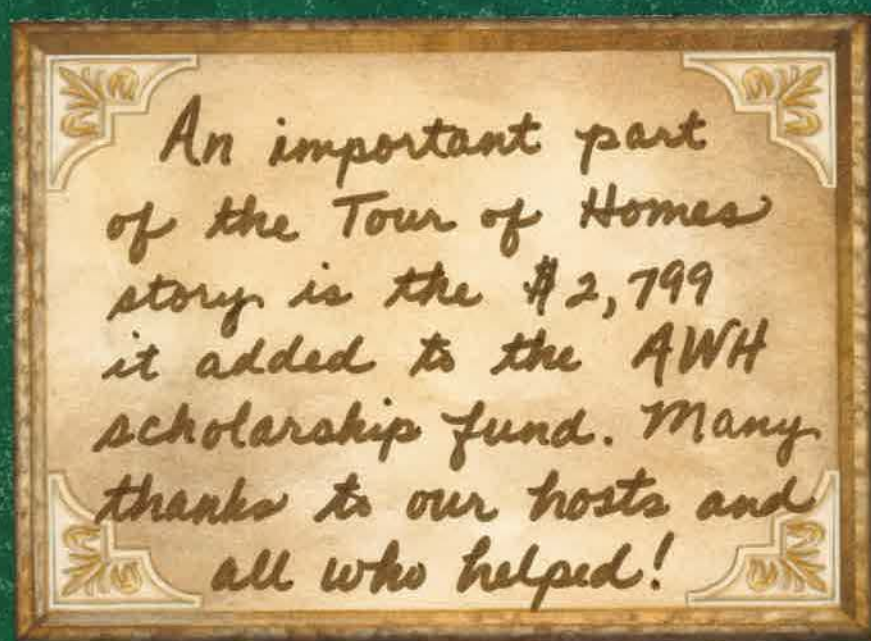 An important part
of the Tour of Homes
story is the $2,799
it added to the AWH
scholarship fund. Many
thanks to our hosts and
all who helped!